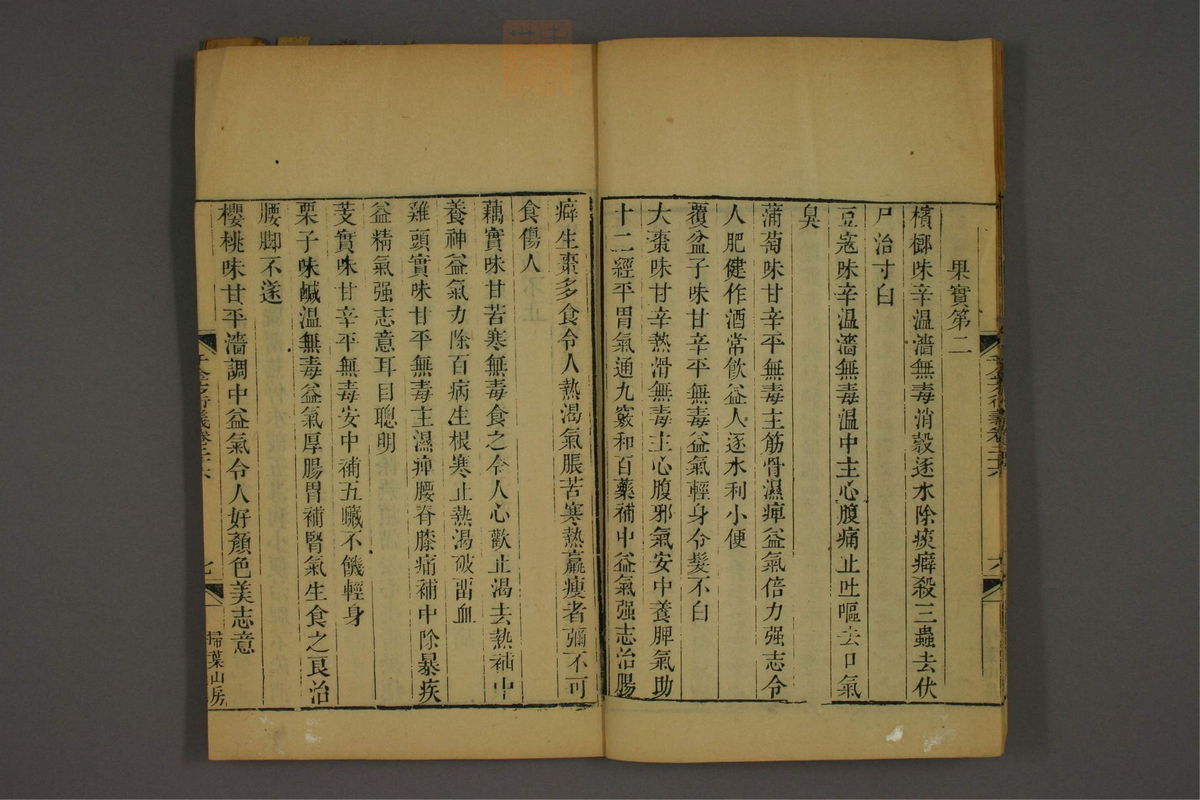 果實第二
檳榔味辛溫濇無毒消穀逐水除痰癖殺三蟲去伏
尸治寸白
豆蔻味辛溫濇無毒溫中主心腹痛止吐嘔去口氣
臭
蒲萄味甘辛平無毒主筋骨濕痺益氣倍力强志令
人肥健作酒常飲益人逐水利小便
覆盆子味甘辛平無毒益氣輕身令髮不白
大棗味甘辛熱滑無毒主心腹邪氣安中養脾氣助
十二經平胃氣通九竅和百藥補中益氣强志治腸
癖生棗多食令人熱渴氣脹苦寒熱羸瘦者彌不可
食傷人
藕實味甘苦寒無毒食之令人心歡止渴去熱補中
養神益氣力除百病生根寒止熱渴破畱血
雞頭實味甘平無毒主濕痺腰脊膝痛補中除暴疾
益精氣强志意耳目聰明
芰實味甘辛平無毒安中補五臟不饑輕身
栗子味鹹溫無毒益氣厚腸胃補腎氣生食之良治
腰脚不遂
櫻桃味甘平濇調中益氣令人好顏色美志意
千金方衍義卷二十六
七
掃葉山房